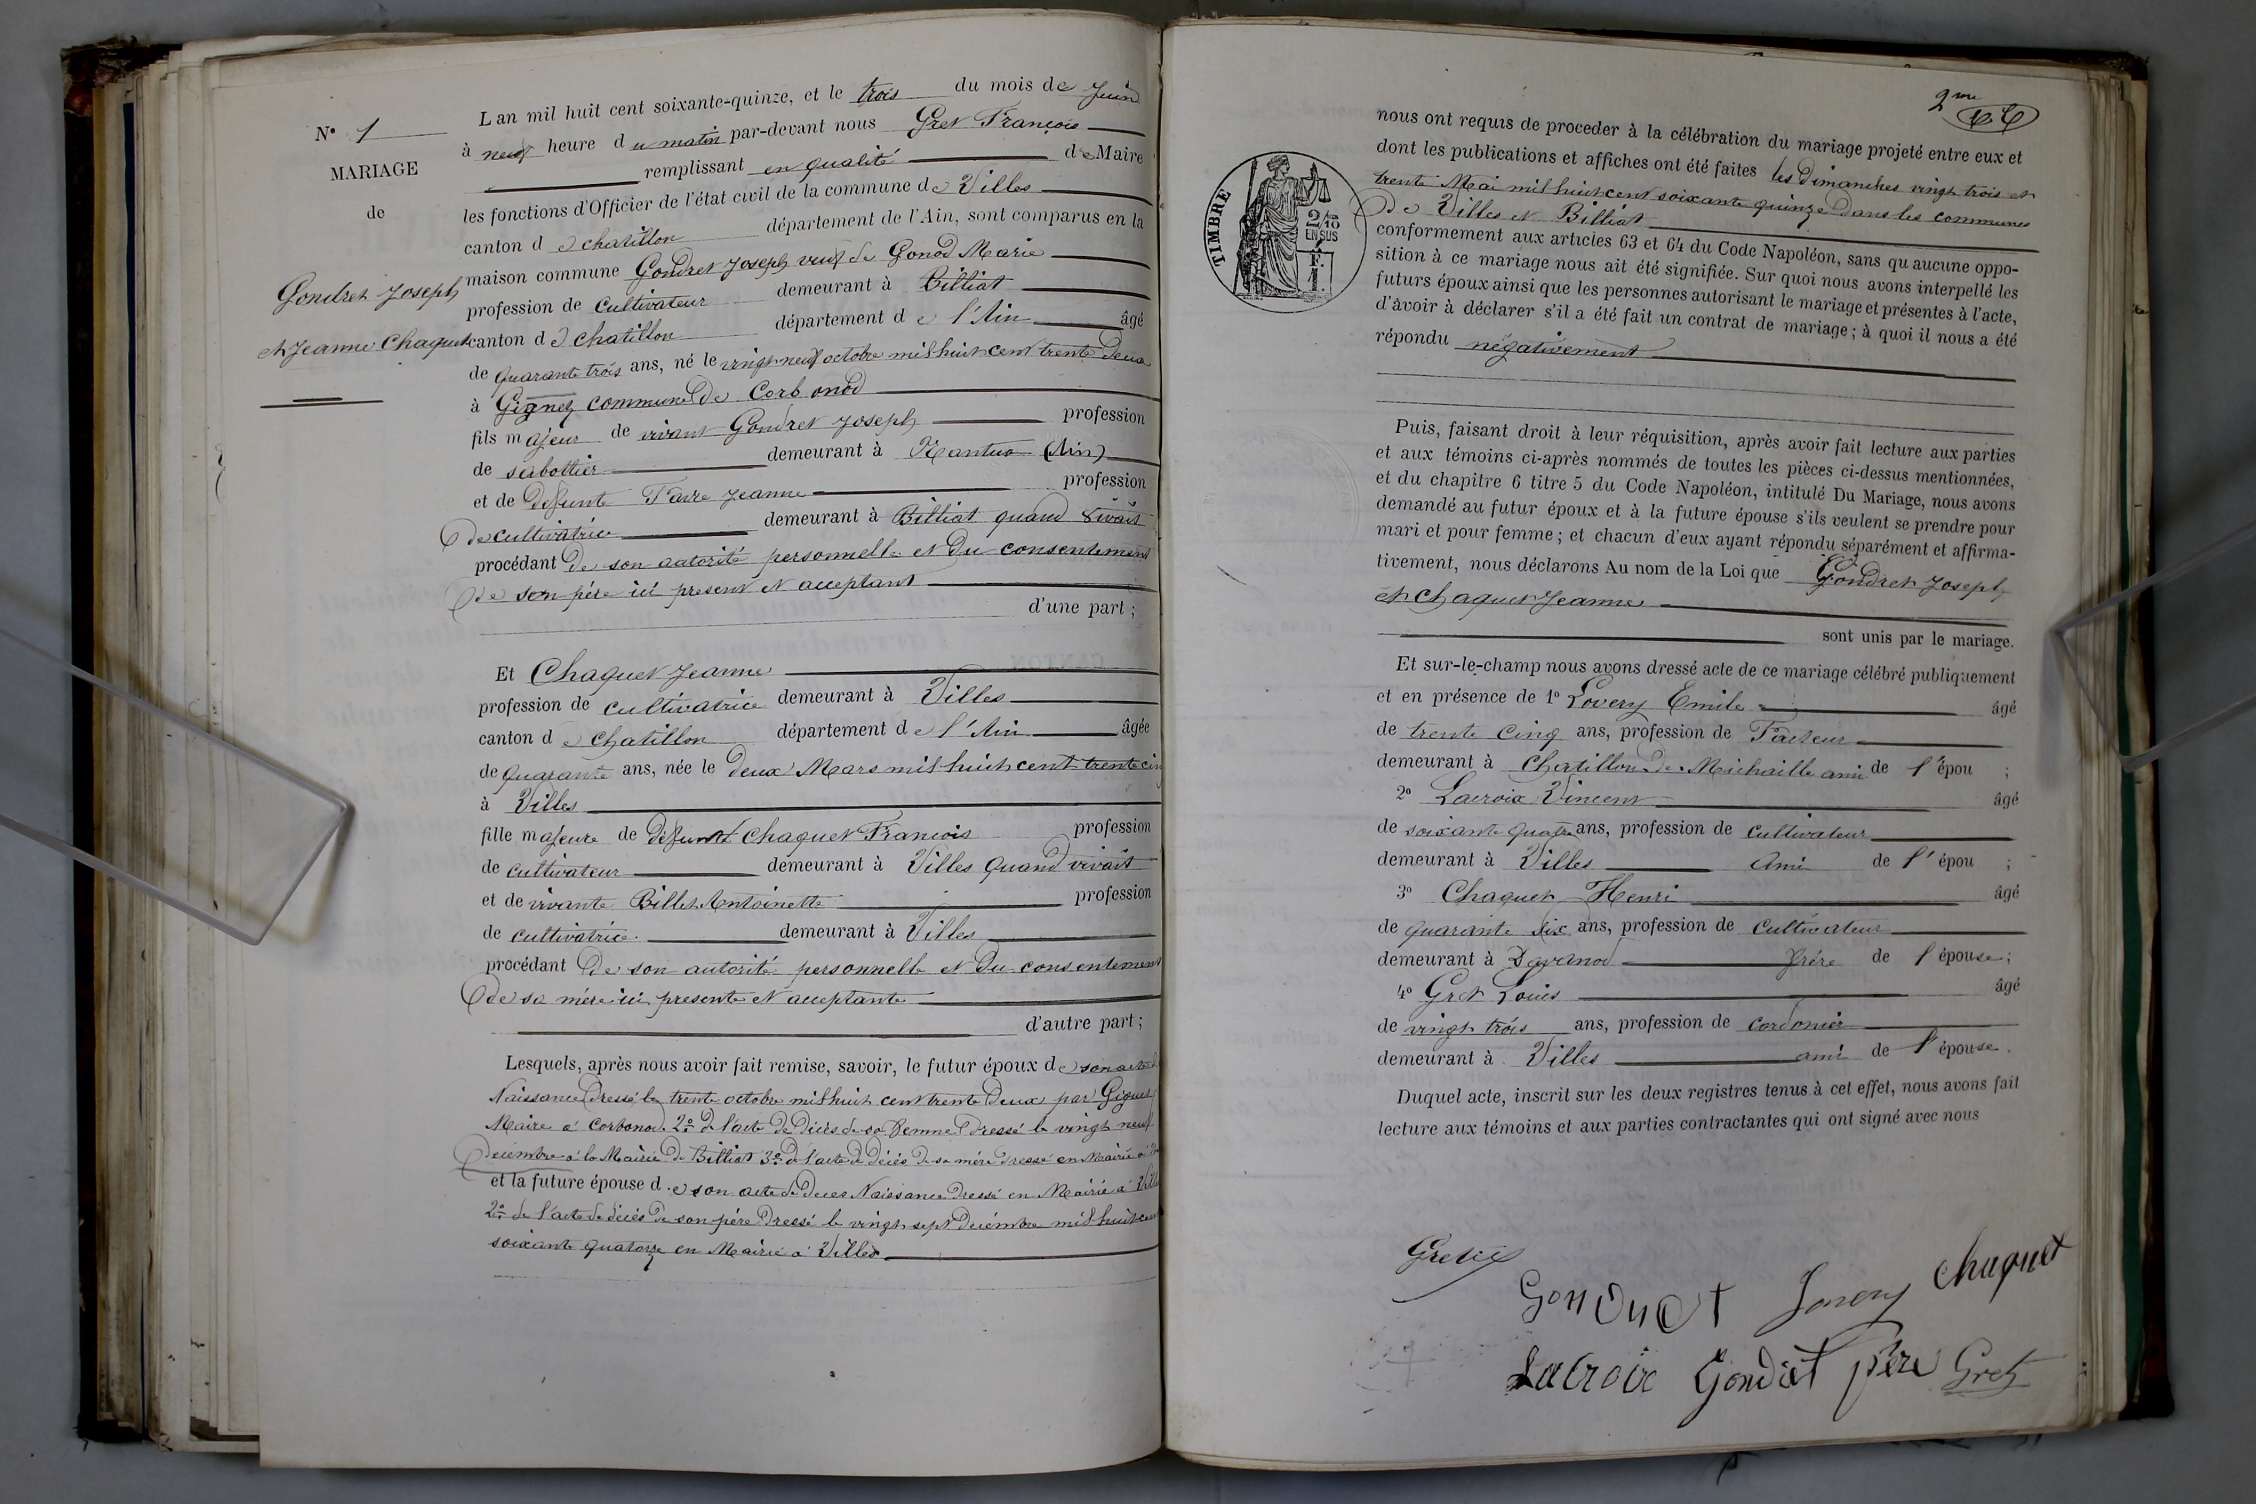 N° 1
MARIAGE
de
Gondret Joseph
et Jeanne Chaquet
L an mil huit cent soixante-quinze, et le trois du mois de Juin
à neuf heure du matin par-devant nous Gret François
remplissant en qualité de Maire
les fonctions d'Officier de l'état civil de la commune de Villes
canton de chatillon département de l'Ain, sont comparus en la
maison commune Gondret Joseph veuf de Gonod Marie
profession de cultivateur demeurant à Billiat
canton de chatillon département de l'Ain âgé
de quarante trois ans, né le vingt neuf octobre mil huit cent trente deux
à Gignez commune de Corbonod
fils majeur de vivant Gondret Joseph profession
de sabottier demeurant à Nantua (Ain)
et de defunte Favre Jeanne profession
de cultivatrice demeurant à Billiat quand vivait
procédant de son autorité personnelle et du consentement
de son père ici present et acceptant
d'une part ;
Et Chaquet Jeanne
profession de cultivatrice demeurant à Villes
canton de chatillon département de l'Ain âgée
de quarante ans, née le deux Mars mil huit cent trente cinq
à Villes
fille majeure de défunt chaquet François profession
de cultivateur demeurant à Villes quand vivait
et de vivante Billet Antoinette profession
de cultivatrice demeurant à Villes
procédant de son autorité personnelle et du consentement
de sa mère ici presente et acceptante
d'autre part ;
Lesquels, après nous avoir fait remise, savoir, le futur époux de son acte de
Naissance dressé le trente octobre mil huit cent trente deux par Giguet
Maire à Corbonod 2° de l'acte de décès de sa femme dressé le vingt neuf
décembre à la Mairie de Billiat 3° de l'acte de décès de sa mère dressé en Mairie à
et la future épouse de son acte de Naissance dressé en Mairie à Villes
2° de l'acte de décès de son père dressé le vingt sept décembre mil huit cent
soixante quatorze en Mairie à Villes
2me
TIMBRE
2/10
EN SUS
1 F.
nous ont requis de proceder à la célébration du mariage projeté entre eux et
dont les publications et affiches ont été faites les dimanches vingt trois et
trente Mai mil huit cent soixante quinze dans les communes
de Villes et Billiat
conformement aux articles 63 et 64 du Code Napoléon, sans qu aucune oppo-
sition à ce mariage nous ait été signifiée. Sur quoi nous avons interpellé les
futurs époux ainsi que les personnes autorisant le mariage et présentes à l'acte,
d'avoir à déclarer s'il a été fait un contrat de mariage ; à quoi il nous a été
répondu négativement
Puis, faisant droit à leur réquisition, après avoir fait lecture aux parties
et aux témoins ci-après nommés de toutes les pièces ci-dessus mentionnées,
et du chapitre 6 titre 5 du Code Napoléon, intitulé Du Mariage, nous avons
demandé au futur époux et à la future épouse s'ils veulent se prendre pour
mari et pour femme ; et chacun d'eux ayant répondu séparément et affirma-
tivement, nous déclarons Au nom de la Loi que Gondret Joseph
et chaquet Jeanne
sont unis par le mariage.
Et sur-le-champ nous avons dressé acte de ce mariage célébré publiquement
et en présence de 1° Lovery Emile âgé
de trente cinq ans, profession de Facteur
demeurant à Chatillon de Michaille ami de l'épou ;
2° Lacroix Vincent âgé
de soixante quatre ans, profession de cultivateur
demeurant à Villes Ami de l'épou ;
3° Chaquet Henri âgé
de quarante six ans, profession de cultivateur
demeurant à frère de l'épouse ;
4° Gret Louis âgé
de vingt trois ans, profession de cordonier
demeurant à Villes ami de l'épouse.
Duquel acte, inscrit sur les deux registres tenus à cet effet, nous avons fait
lecture aux témoins et aux parties contractantes qui ont signé avec nous
Gondret Chaquet
Lacroix Gondret père Gret